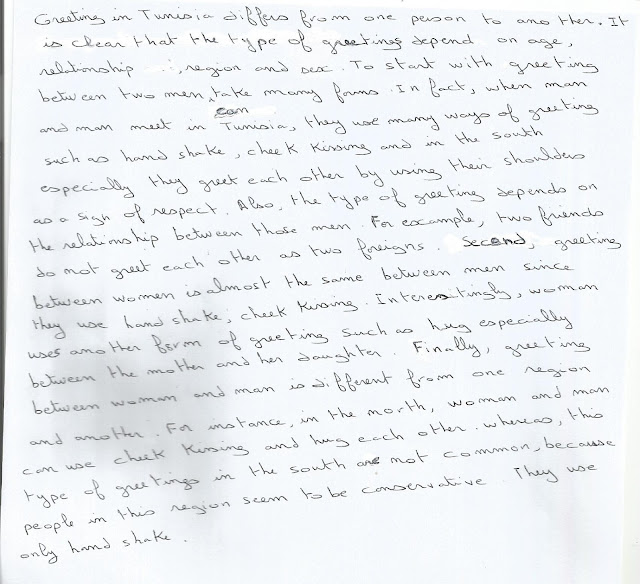 Greeting in Tunisia differs from one person to another. It
is clear that the type of greetings depend on age,
relationship , region and sex. To start with greeting
between two men, can take many forms. In fact, when man
and man meet in Tunisia, they use many ways of greeting
such as hand shake, cheek kissing and in the south
especially they greet each other by using their shoulders
as a sign of respect. Also, the type of greeting depends on
the relationship between those men. For example, two friends
do not greet each other as two foreigns. Second, greeting
between women is almost the same between men since
they use hand shake, cheek kissing. Interestingly, woman
uses another form of greeting such as hug especially
between the mother and her daughter. Finally, greeting
between woman and man is different from one region
and another. For instance, in the north, woman and man
can use cheek kissing and hug each other. whereas, this
type of greetings in the south are not common, because
people in this region seem to be conservative. They use
only hand shake.